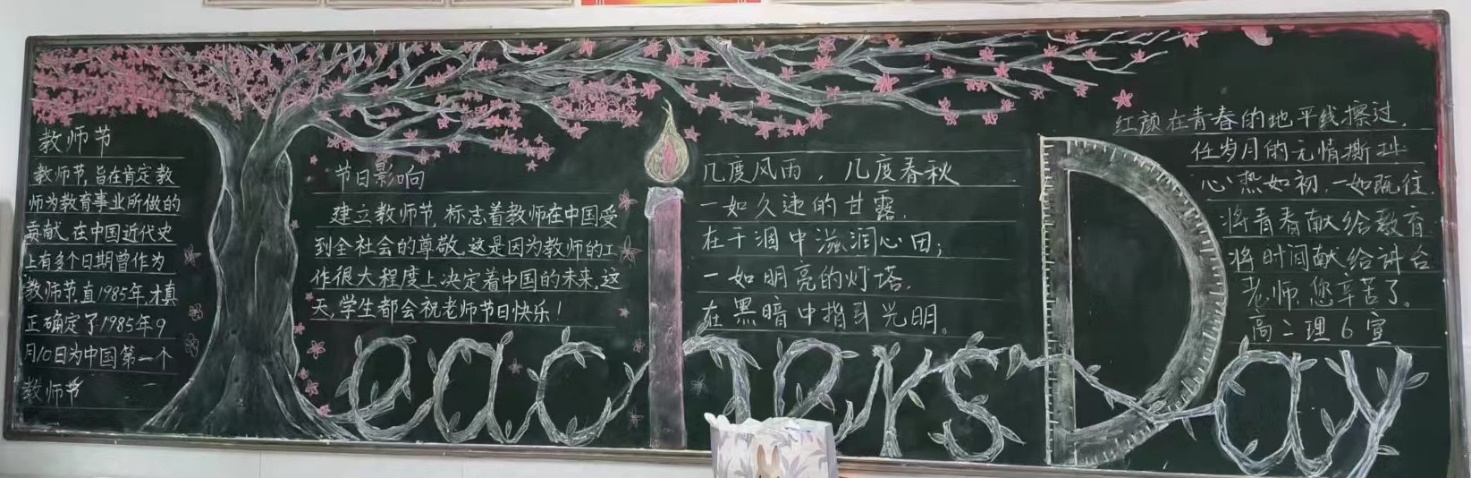 教师节
教师节,旨在肯定教
师为教育事业所做的
贡献.在中国近代史
上有多个日期曾作为
教师节.直1985年.才真
正确定了1985年9
月10日为中国第一个
教师节
节日影响
建立教师节.标志着教师在中国受
到全社会的尊敬.这是因为教师的工
作很大程度上决定着中国的未来.这
天,学生都会祝老师节日快乐!
几度风雨,几度春秋
一如久违的甘露.
在干涸中滋润心田;
一如明亮的灯塔.
在黑暗中指引光明。
红颜在青春的地平线擦过.
任岁月的无情撕扯
心热如初.一如既往.
将青春献给教育
将时间献给讲台
老师.您辛苦了。
高二理6宣
Teachers Day